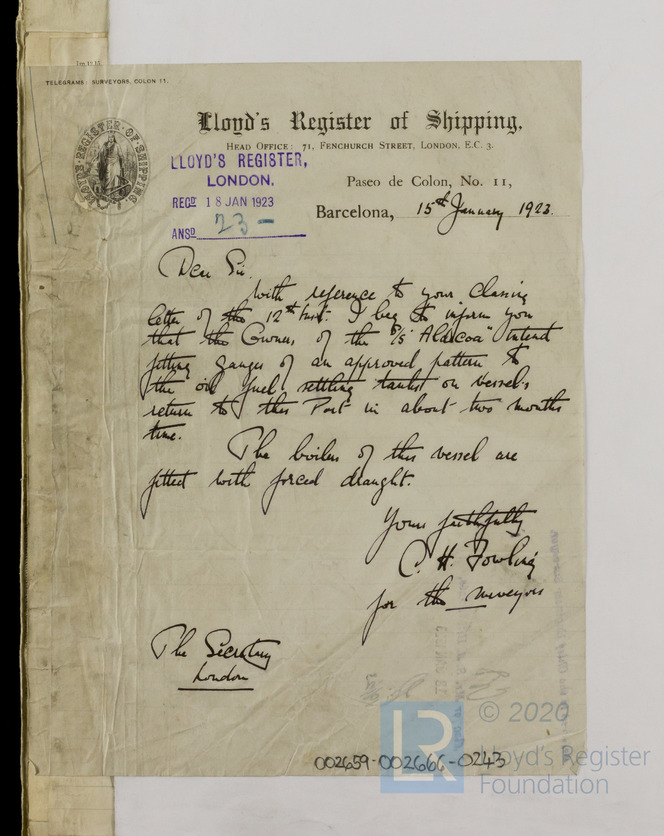 1m.13.13.
TELEGRAMS: SURVEYORS, COLON 11.
LLOYD'S REGISTER OF SHIPPING
Lloyd's Register of Shipping,
HEAD OFFICE: 71, FENCHURCH STREET, LONDON, E.C. 3.
LLOYD'S REGISTER,
LONDON.
RECD 18 JAN 1923
ANSD 23 -
Paseo de Colon, No. 11,
Barcelona, 15th January 1923.
Dear Sir,
With reference to your classing
letter of the 12th Inst. I beg to inform you
that the Owners of the S/S "Aldecoa" intend
fitting gauges of an approved pattern to
the oil fuel settling tanks on vessel's
return to this Port in about two months
time.
The boilers of this vessel are
fitted with forced draught.
Yours faithfully
C. H. Fowling
for the surveyors
The Secretary
London
002659-002666-0243
LR
© 2020
Lloyd's Register
Foundation